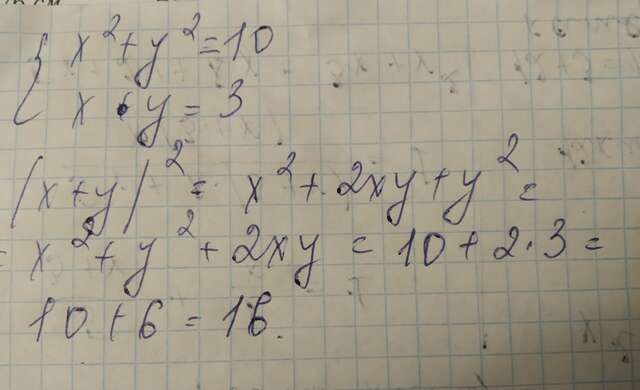 x² + y² = 10
x · y = 3
(x + y)² = x² + 2xy + y² =
= x² + y² + 2xy = 10 + 2·3 =
10 + 6 = 16.